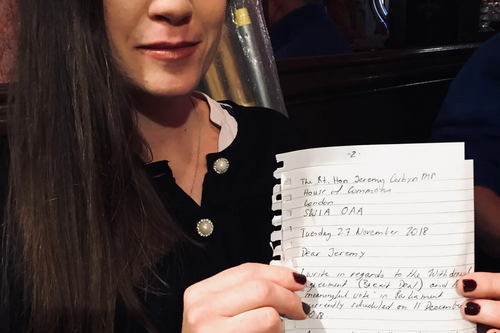 -2-
The Rt. Hon Jeremy Corbyn MP
House of Commons
London
SW1A 0AA
Tuesday 27 November 2018
Dear Jeremy
I write in regards to the Withdrawal
Agreement (Brexit Deal) and a
'meaningful vote' in Parliament
currently scheduled on 11 December
2018